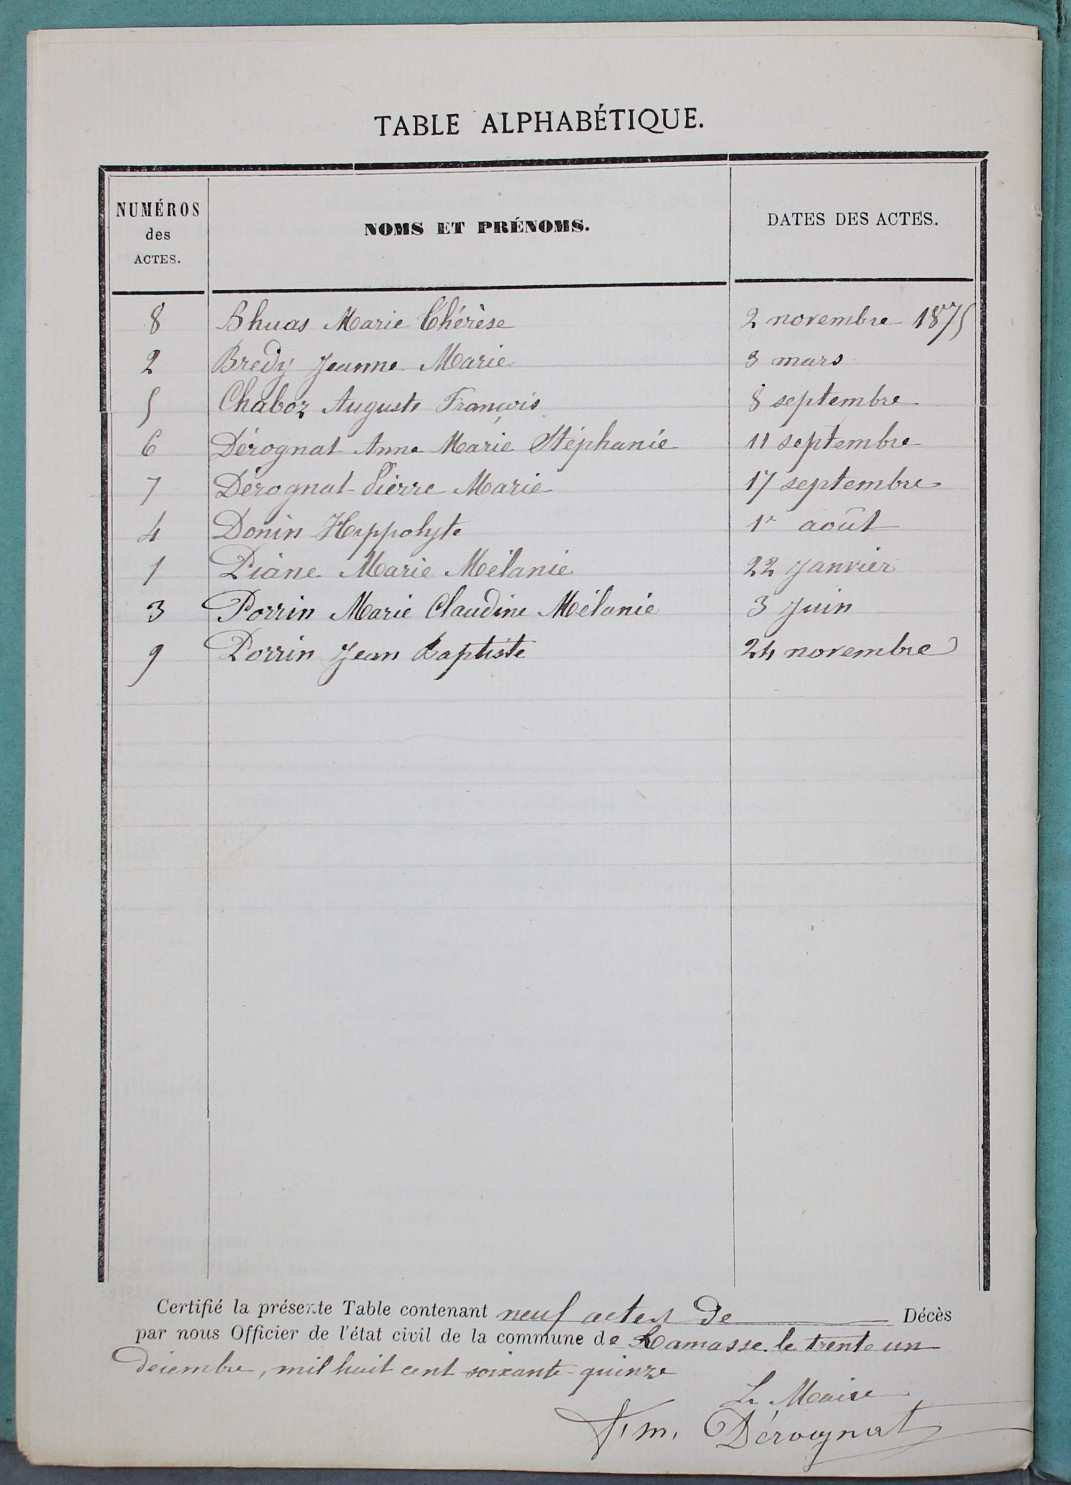 TABLE ALPHABÉTIQUE.
NUMÉROS des ACTES. NOMS ET PRÉNOMS. DATES DES ACTES.
8 Bhuas Marie Thérèse 2 novembre 1875
2 Bredy Jeanne Marie 3 mars
5 Chaboz Auguste François 8 septembre
6 Dérognat Anne Marie Stéphanie 11 septembre
7 Dérognat Pierre Marie 17 septembre
4 Donin Hippolyte 1er août
1 Piane Marie Mélanie 22 Janvier
3 Porrin Marie Claudine Mélanie 3 Juin
9 Porrin Jean Baptiste 24 novembre
Certifié la présente Table contenant neuf actes de Décès
par nous Officier de l'état civil de la commune de Ramasse le trente un
décembre, mil huit cent soixante-quinze
Le Maire
Dérognat